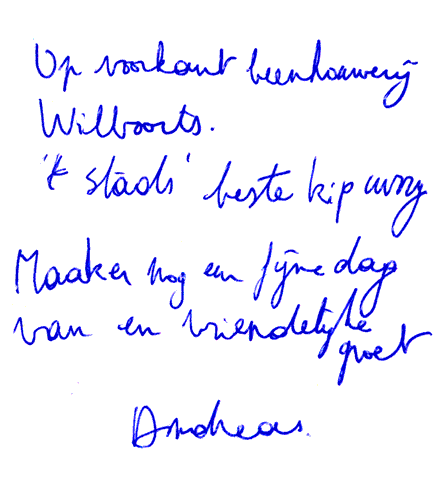 Op voorkant beenhouwerij
Wilboorts.
't stads' beste kip curry
Maak er nog een fijne dag
van en vriendelijke
groet
Andreas.